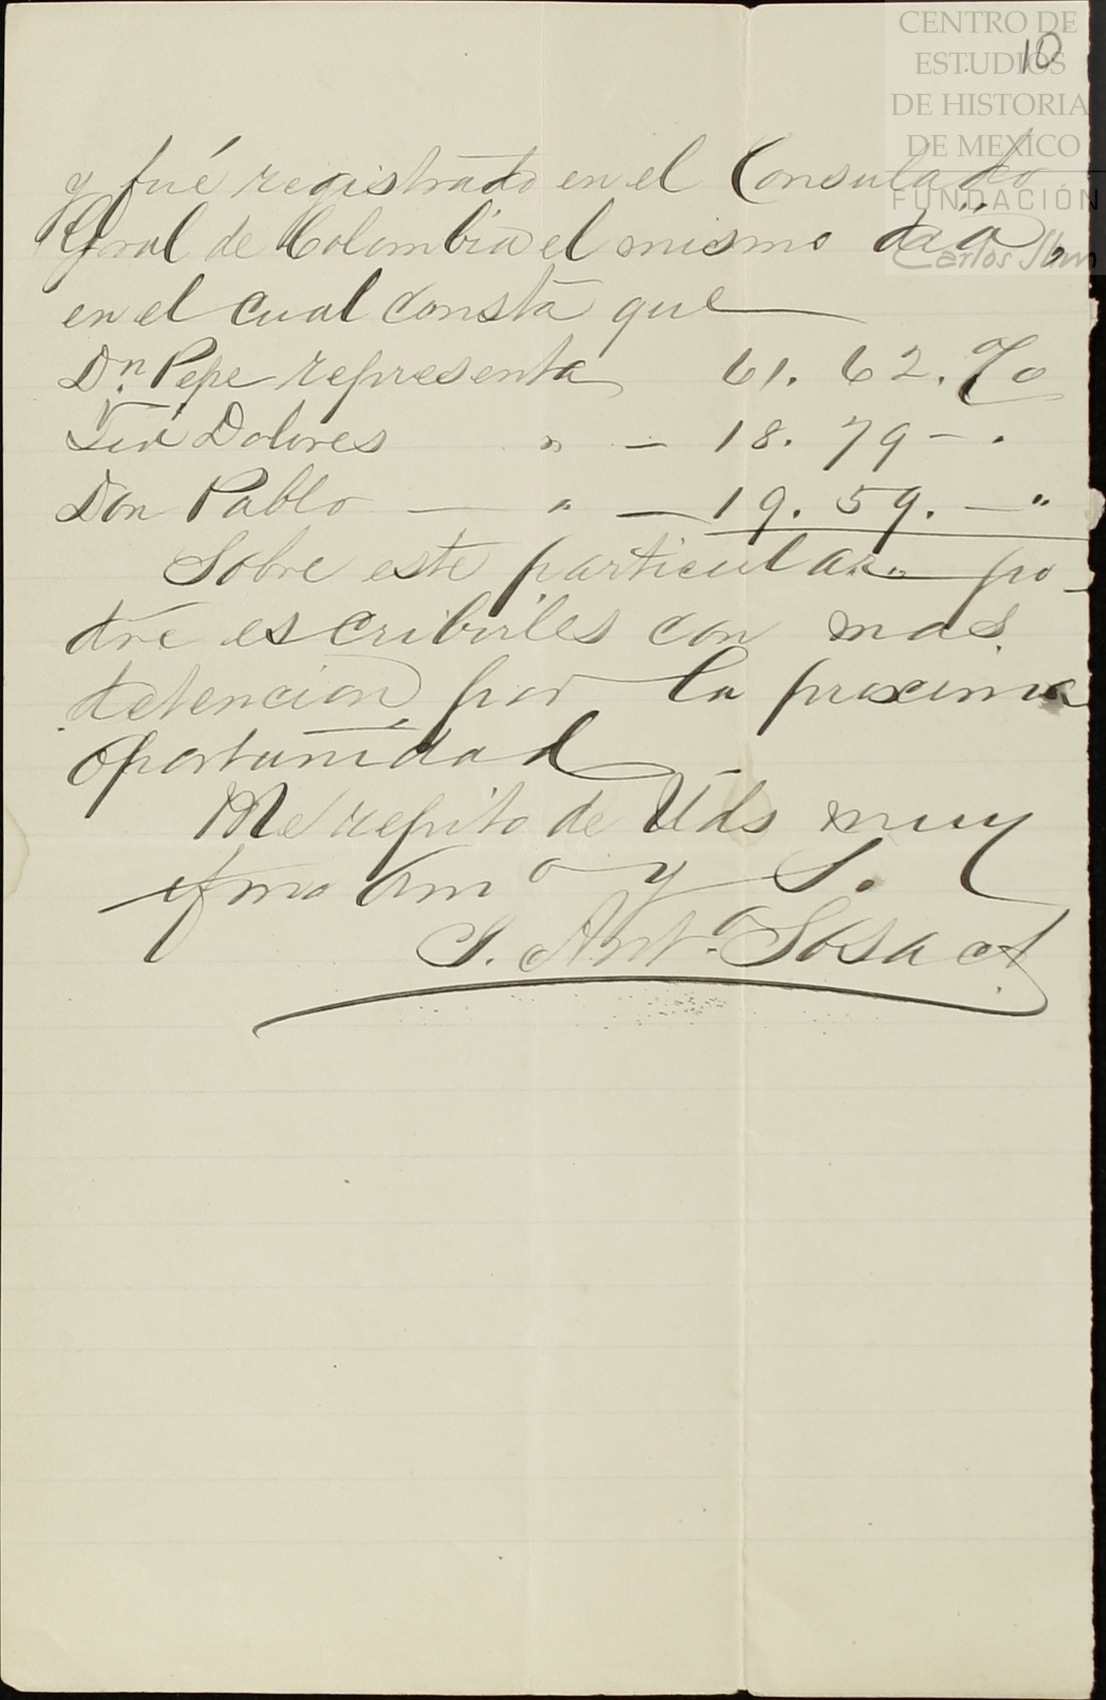 CENTRO DE
ESTUDIOS
DE HISTORIA
DE MEXICO
FUNDACIÓN
Carlos Slim
10
y fué registrado en el Consulado
Gral de Colombia el mismo dia,
en el cual consta que
Dn. Pepe representa 61. 62. %
Tia Dolores " — 18. 79 — "
Don Pablo — " — 19. 59. — "
Sobre este particular po-
dre escribirles con mas
detencion por la proxima
oportunidad
Me repito de Uds muy
afmo Amo y S.
S. Anto. Sosa A